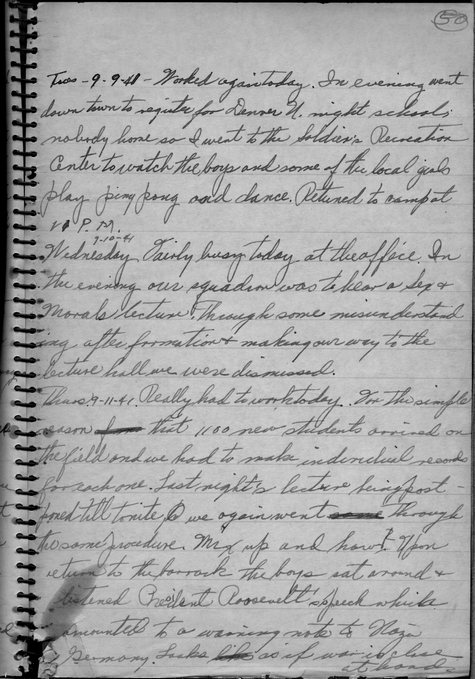 50
Tues - 9-9-41 - Worked again today. In evening went
down town to register for Denver U. night school;
nobody home so I went to the Soldier's Recreation
Center to watch the boys and some of the local gals
play ping pong and dance. Returned to camp at
P.M.
9-10-41
Wednesday Fairly busy today at the office. In
the evening our squadron was to hear a Sex &
Morals lecture. Through some misunderstand
ing after formation & making our way to the
lecture hall we were dismissed.
Thurs. 9-11-41. Really had to work today. For the simple
reason that 1100 new students arrived on
the field and we had to make individual records
for each one. Last night's lecture being post-
poned till tonite we again went through
the same procedure. Mix up and how! Upon
return to the barrack the boys sat around &
listened President Roosevelt's speech which
amounted to a warning note to Nazi
Germany. Looks as if war is close
at hand.